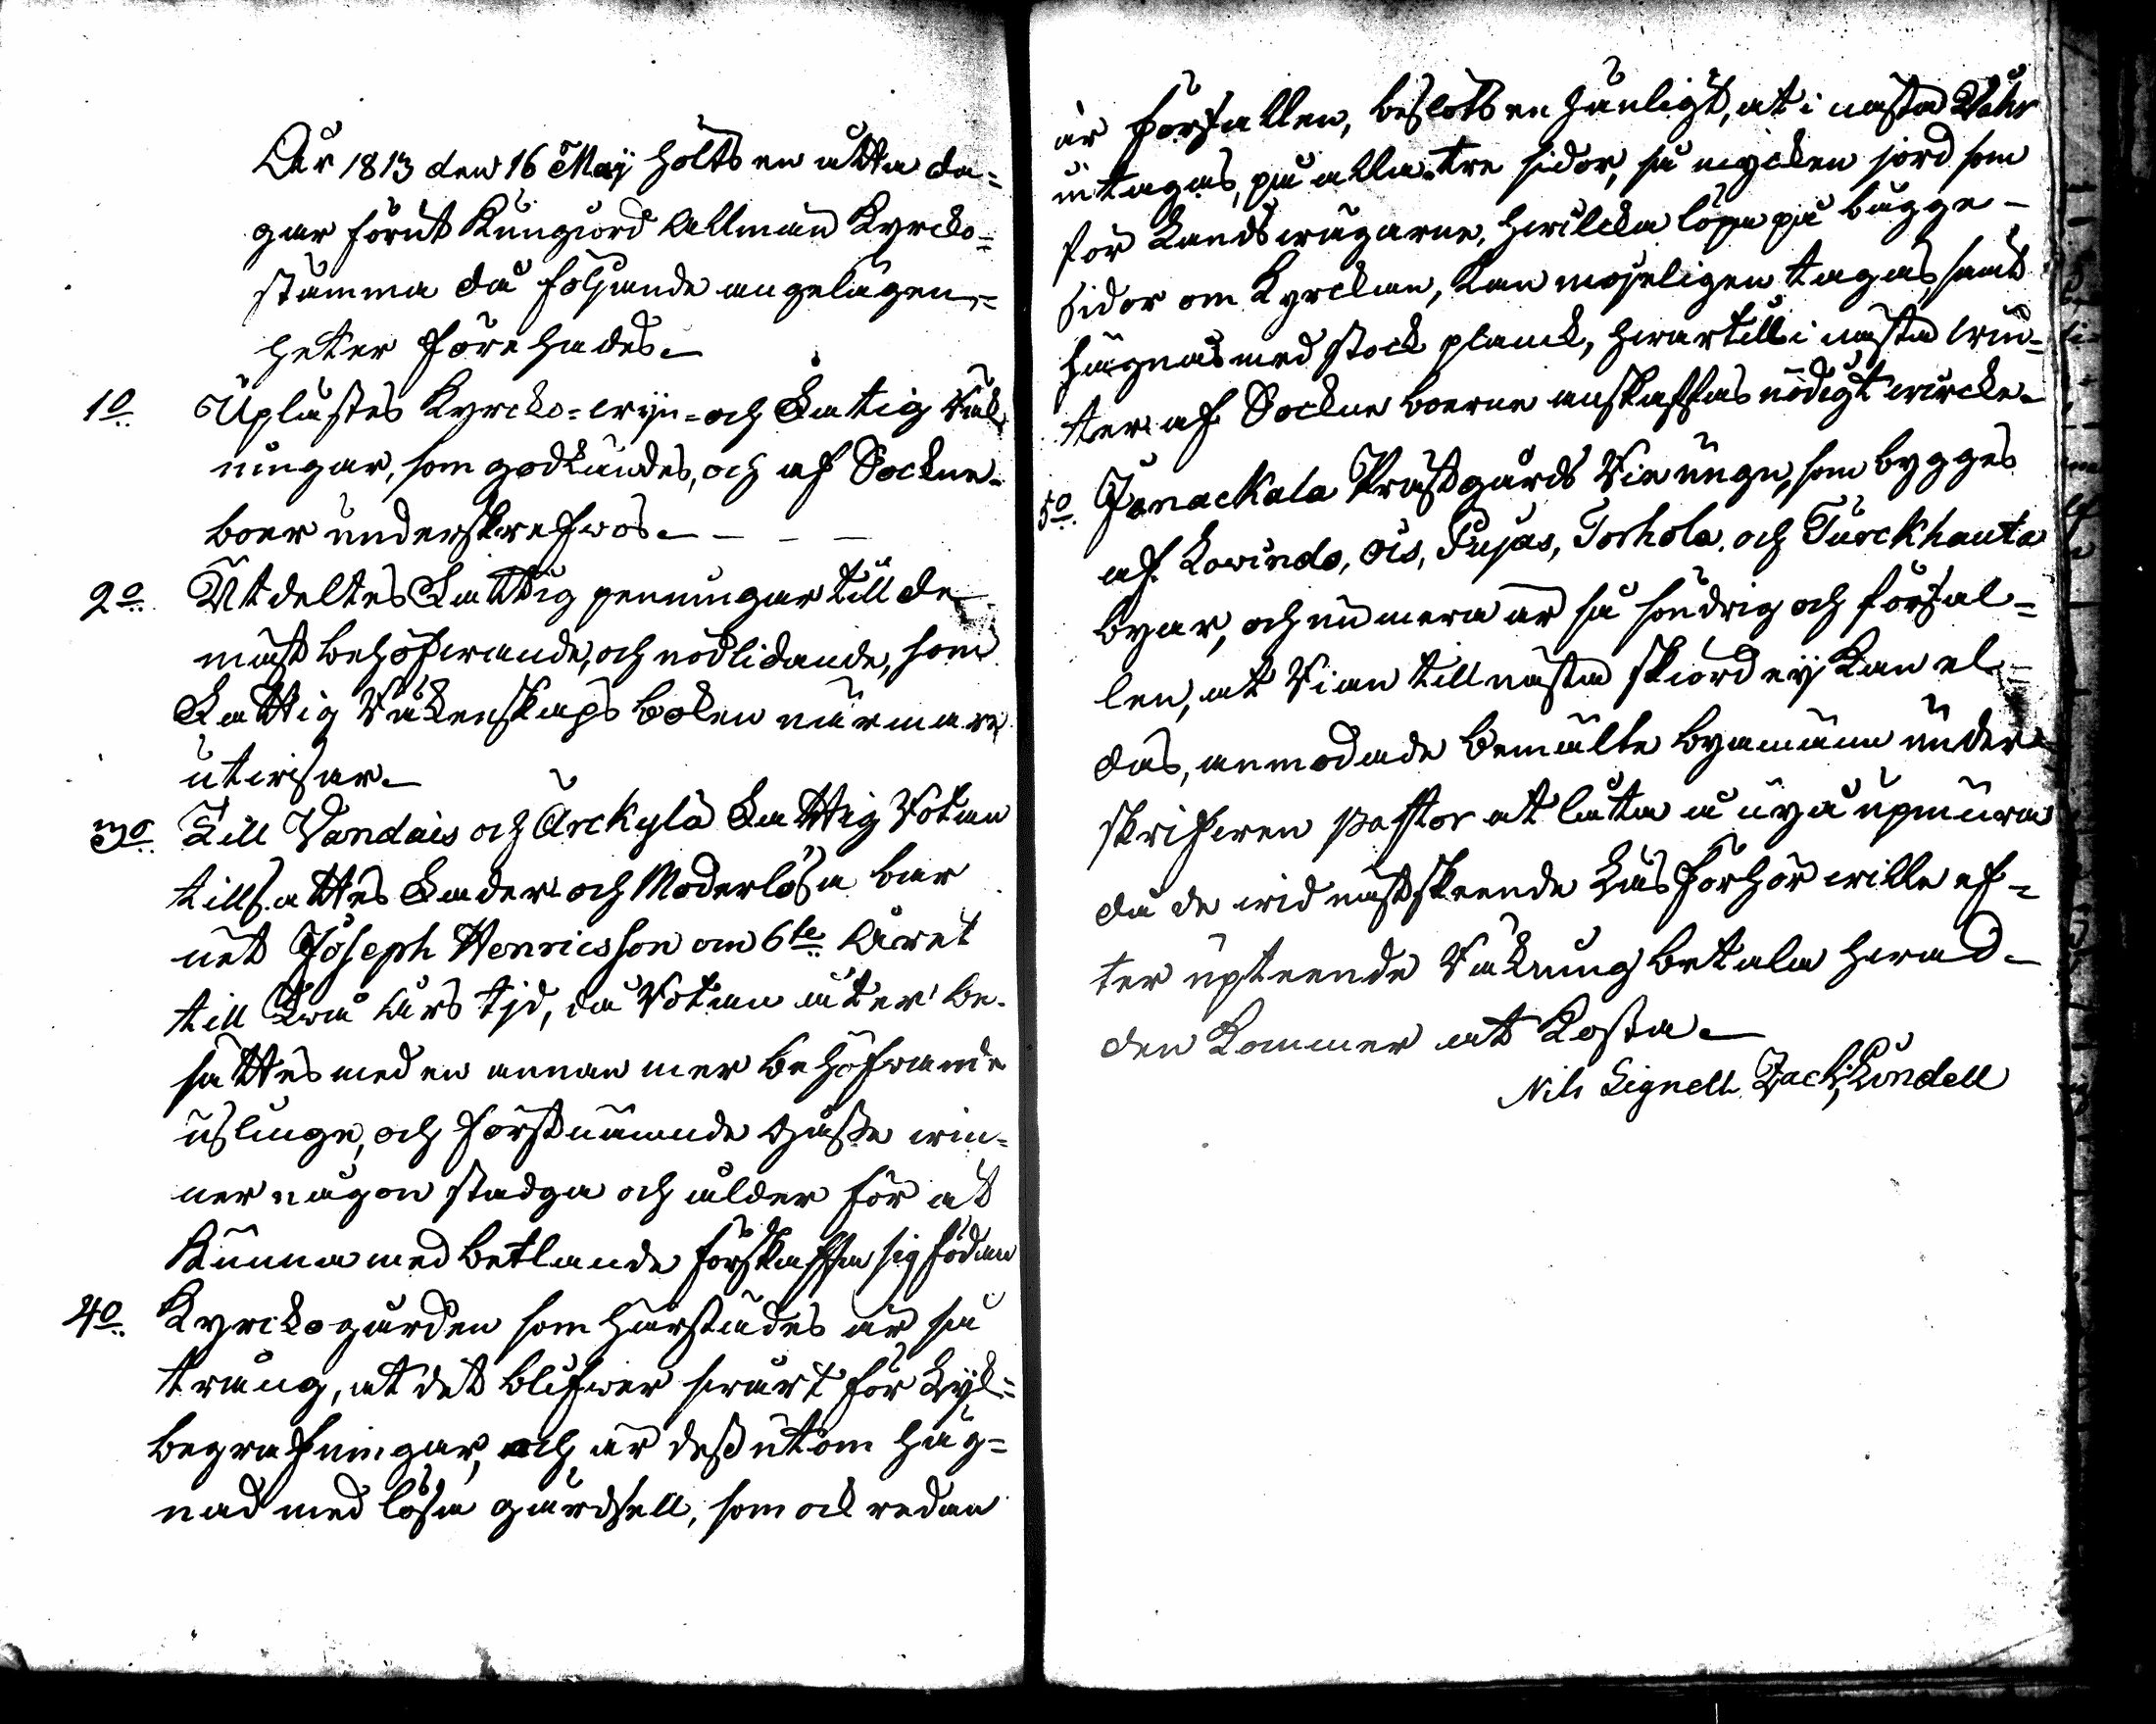 Åhr 1813 den 16 Maÿ höltes en åtta da=
gar förut kungiord Allmän Kyrcko=
stämma då följande angelägen=
heter förehades.
1o. Uplästes Kyrcko= wijn= och Fattig Räk
ningar, som godkändes, och af Sockne=
boer underskrefwos. - - -
2o. Utdeltes Fattig penningar till de
mäst behöfwande, och nödlidande, som
Fattig Räkenskaps boken närmare
utwisar.
3o. Till Vandais och Arckylä Fattig Rotan
tillsattes Fader och Moderlösa bar
net Joseph Henricsson om 6te året
till Twå års tjd, då Rotan åter be-
sättes med en annan mer behöfwande
usling, och förstnämnde Gåsse win=
ner någon stadga och ålder för at
kunna med betlande förskaffa sig födan
4o. Kyrckogården som härstädes är så
trång, at det blifwer swårt för Lijk=
begrafningar, och är dessutom häg=
nad med lösa gärdsell, som ock redan
är förfallen, beslöts enhäligt, at i nästa Vahr
intagas, på alla tre sidor, så mycken jord som
för Landswägarne, hwilcka löpa på bägge -
sidor om Kyrckan, kan mojeligen tagas, samt
hägnas med stock planck, hwartill i nästa win=
ter af Socknеboerne anskaffas nödigt wircke.
5o. Janackala Prästgårds Rie ungn, som bygges
af Kowindo, Ois, Pujas, Torhola, och Turckhauta
byar, och nu mera är så söndrig och förfal=
len, at Rian till nästa skiörd eij kan el=
das, anmodade bemälte byamänn under=
skrifwen Pastor at låta å nyå upmura
då de wid nästskeende Läsförhör wille ef=
ter upteende Räkning betala hwad
den kommer at kosta.
Nils Lignell Zach: Lindell